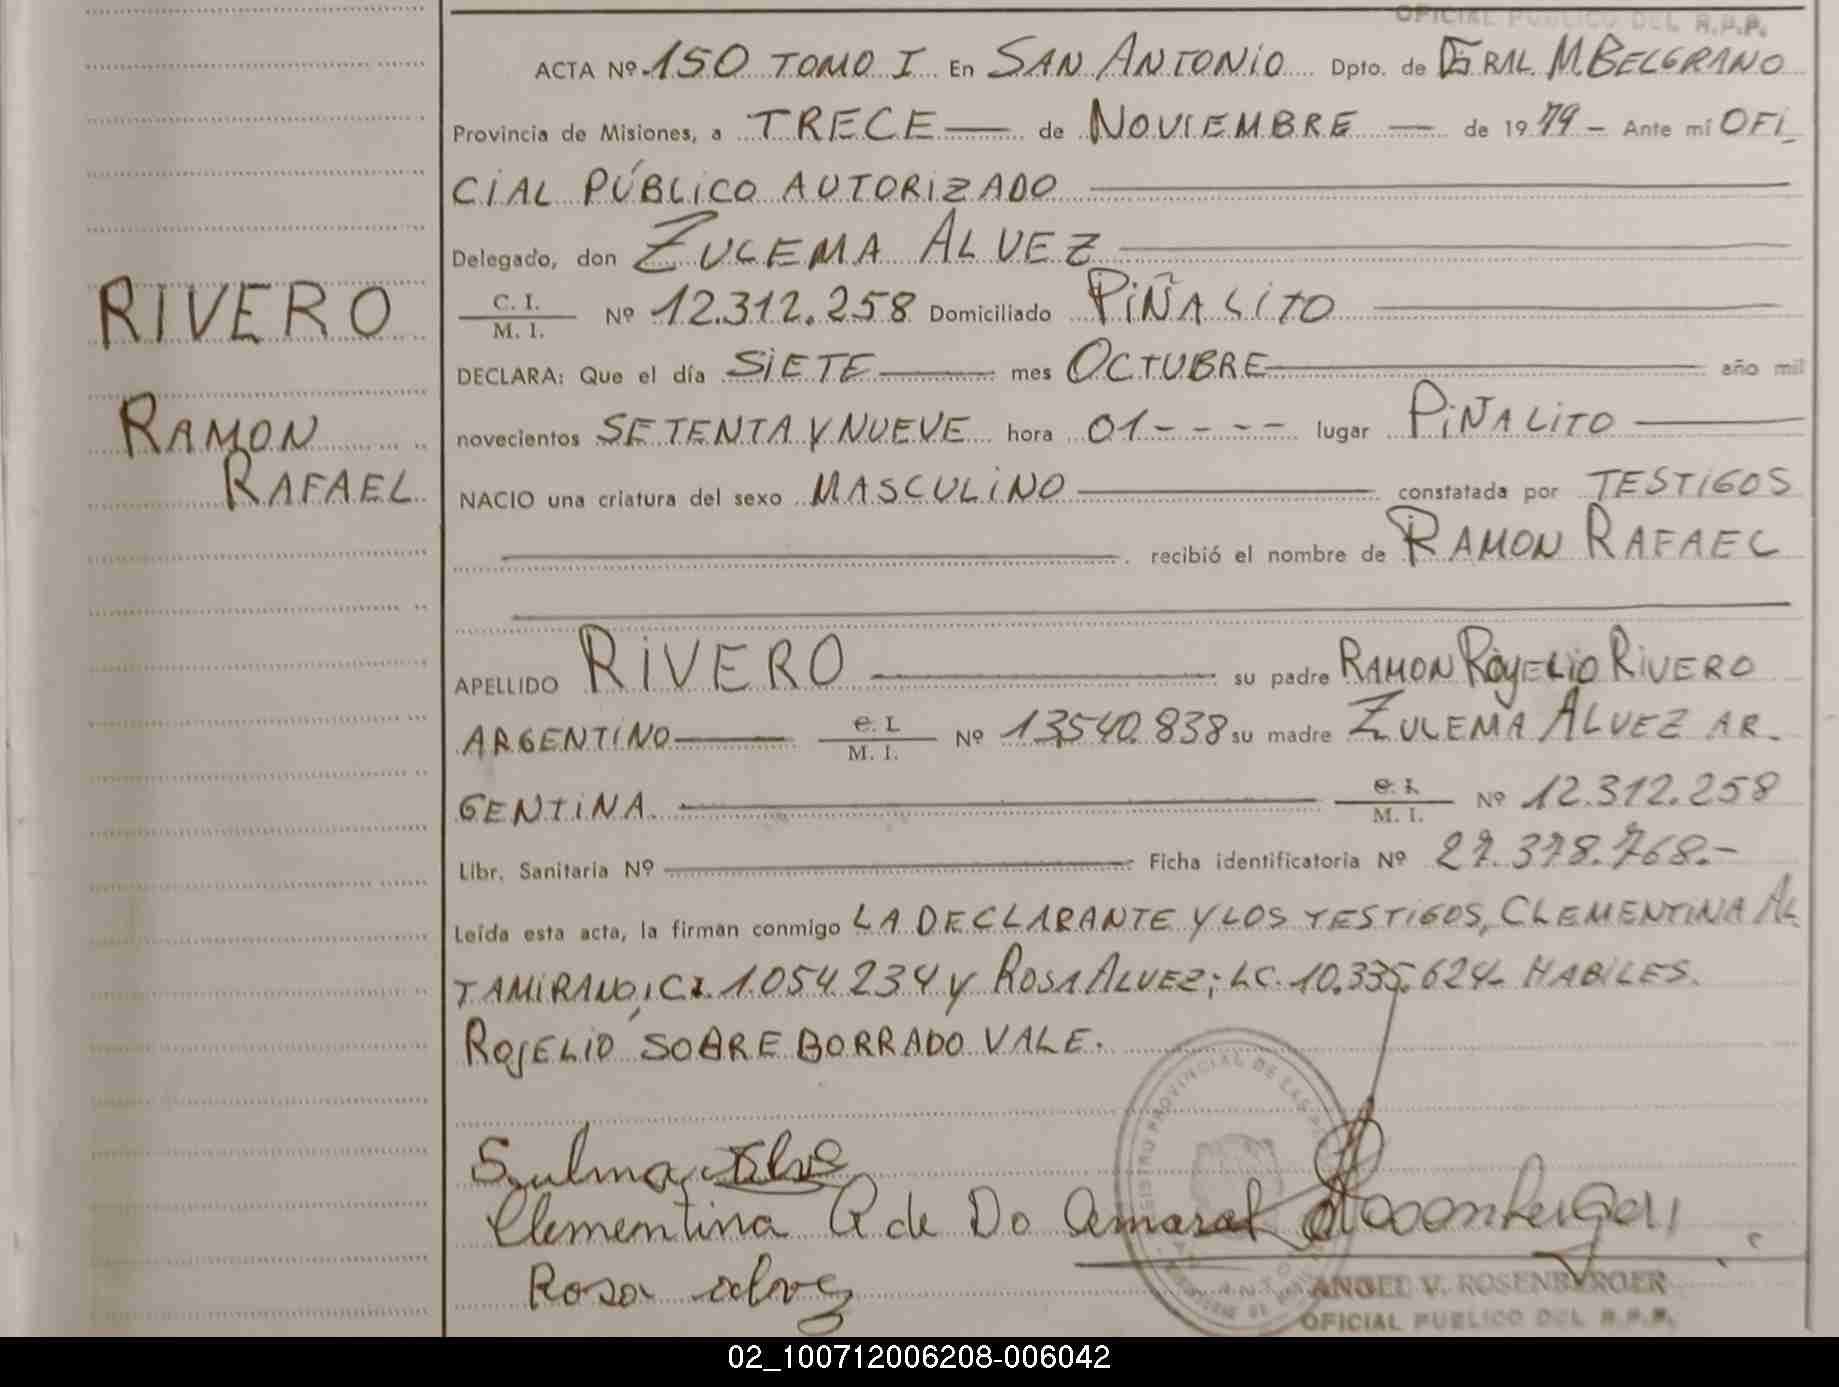 OFICIAL PUBLICO DEL R.P.P.
ACTA Nº 150 TOMO I En SAN ANTONIO Dpto. de GRAL. M. BELGRANO
Provincia de Misiones, a TRECE — de NOVIEMBRE — de 1979 - Ante mí OFI-
CIAL PÚBLICO AUTORIZADO
Delegado, don ZULEMA ALVEZ
C. I.
M. I. Nº 12.312.258 Domiciliado PIÑALITO
DECLARA: Que el día SIETE — mes OCTUBRE — año mil
novecientos SETENTA Y NUEVE hora 01 - - - - lugar PIÑALITO
NACIO una criatura del sexo MASCULINO — constatada por TESTIGOS
recibió el nombre de RAMON RAFAEL
RIVERO
RAMON
RAFAEL
APELLIDO RIVERO — su padre RAMON ROJELIO RIVERO
ARGENTINO — C. I. M. I. Nº 13.540.838 su madre ZULEMA ALVEZ AR-
GENTINA. — C. I. M. I. Nº 12.312.258
Libr. Sanitaria Nº — Ficha identificatoria Nº 27.378.768.-
Leída esta acta, la firman conmigo LA DECLARANTE Y LOS TESTIGOS, CLEMENTINA AL
TAMIRANO, CI. 1.054.234 y ROSA ALVEZ; LC. 10.335.624- HABILES.
ROJELIO SOBRE BORRADO VALE.
Sulma Alve
Clementina A de Do Amaral
Rosa alvez
ANGEL V. ROSENBERGER
OFICIAL PUBLICO DEL R.P.P.
02_100712006208-006042